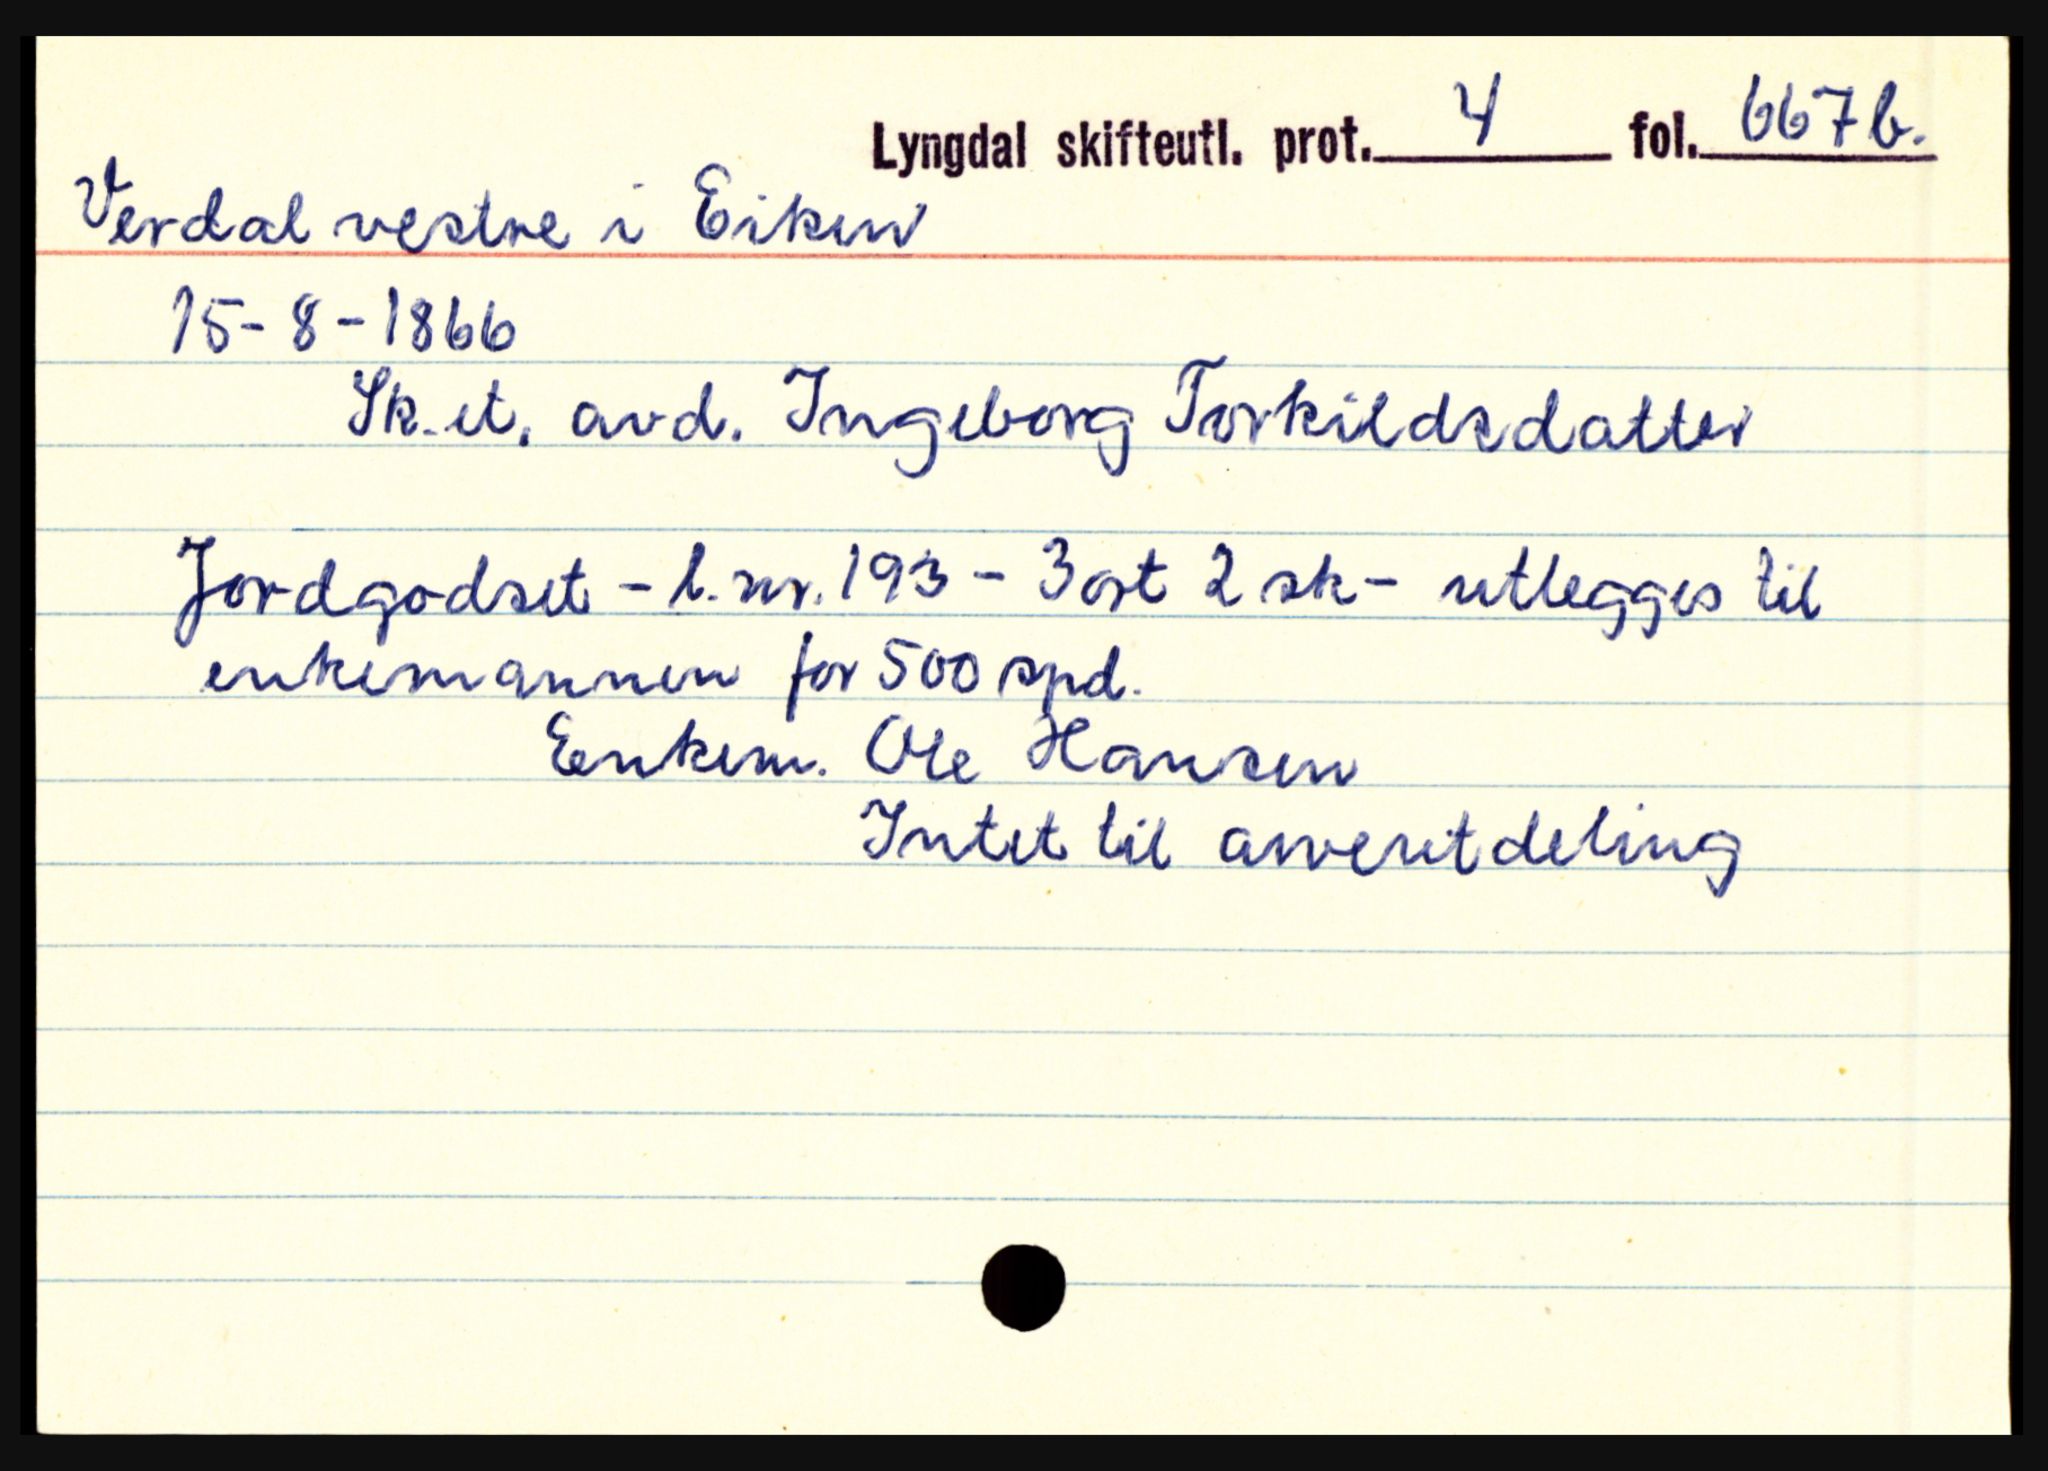 Lyngdal skifteutl. prot. 4 fol. 667b.
Verdal vestre i Eiken
15-8-1866
Sk. et. avd. Ingeborg Torkildsdatter
Jordgodset - l. nr. 193 - 3 ort 2 sk - utlegges til
enkemannen for 500 spd.
Enkem. Ole Hansen
Intet til arveutdeling